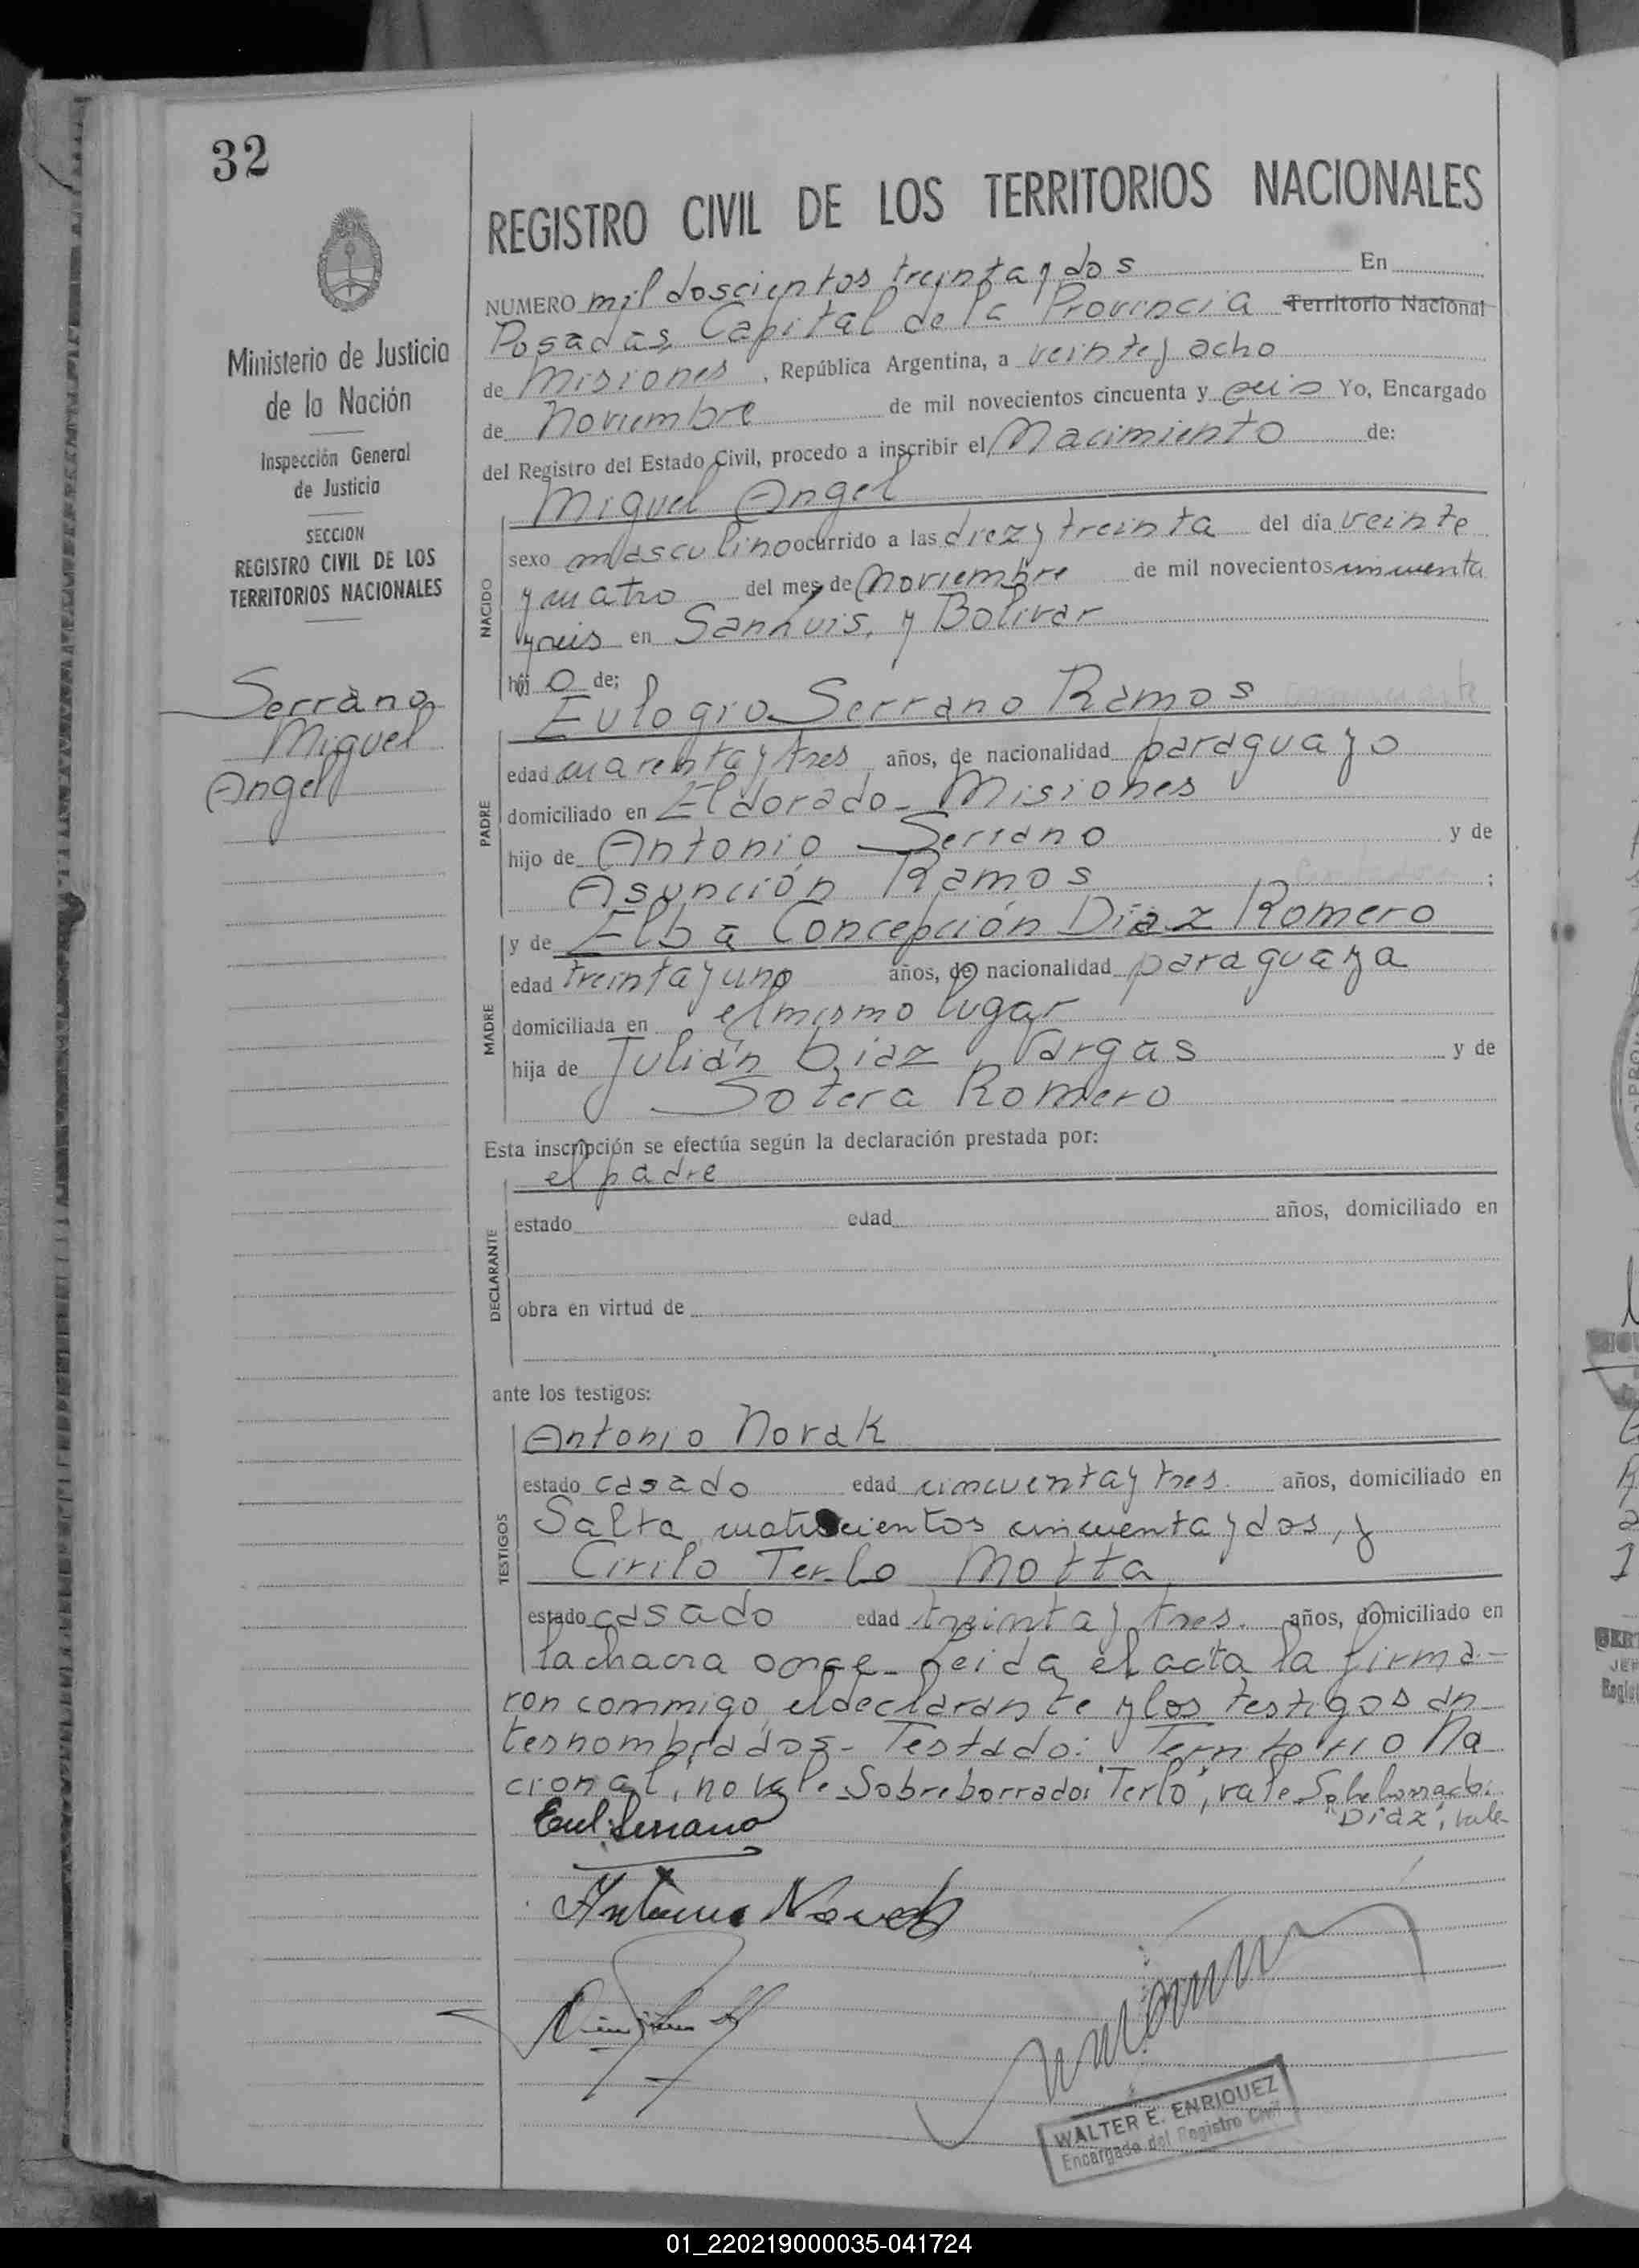 32
Ministerio de Justicia
de la Nación
Inspección General
de Justicia
SECCION
REGISTRO CIVIL DE LOS
TERRITORIOS NACIONALES
Serrano
Miguel
Angel
REGISTRO CIVIL DE LOS TERRITORIOS NACIONALES
NUMERO mil doscientos treinta y dos En
Posadas, Capital de la Provincia Territorio Nacional
de Misiones, República Argentina, a veinte y ocho
de Noviembre de mil novecientos cincuenta y seis Yo, Encargado
del Registro del Estado Civil, procedo a inscribir el Nacimiento de:
Miguel Angel
NACIDO
sexo masculino ocurrido a las diez y treinta del día veinte
y cuatro del mes de Noviembre de mil novecientos cincuenta
y seis en San Luis, y Bolivar
hij o de;
Eulogio Serrano Ramos
PADRE
edad cuarenta y tres años, de nacionalidad paraguayo
domiciliado en Eldorado - Misiones
hijo de Antonio Serrano y de
Asunción Ramos ;
MADRE
y de Elba Concepción Díaz Romero
edad treinta y uno años, de nacionalidad paraguaya
domiciliada en el mismo lugar
hija de Julián Diaz Vargas y de
Sotera Romero
Esta inscripción se efectúa según la declaración prestada por:
el padre
DECLARANTE
estado edad años, domiciliado en
obra en virtud de
ante los testigos:
TESTIGOS
Antonio Novak
estado casado edad cincuenta y tres. años, domiciliado en
Salta cuatrocientos cincuenta y dos, y
Cirilo Terlo Motta
estado casado edad treinta y tres. años, domiciliado en
la chacra once - Leida el acta la firma-
ron conmigo, el declarante y los testigos an-
tesnombrados - Testado: "Territorio Na
cional", no vale - Sobreborrado: "Terlo", vale. Sobreborrado:
"Díaz", vale-
Eul. Serrano
Antonio Novak
WALTER E. ENRIQUEZ
Encargado del Registro Civil
01_220219000035-041724